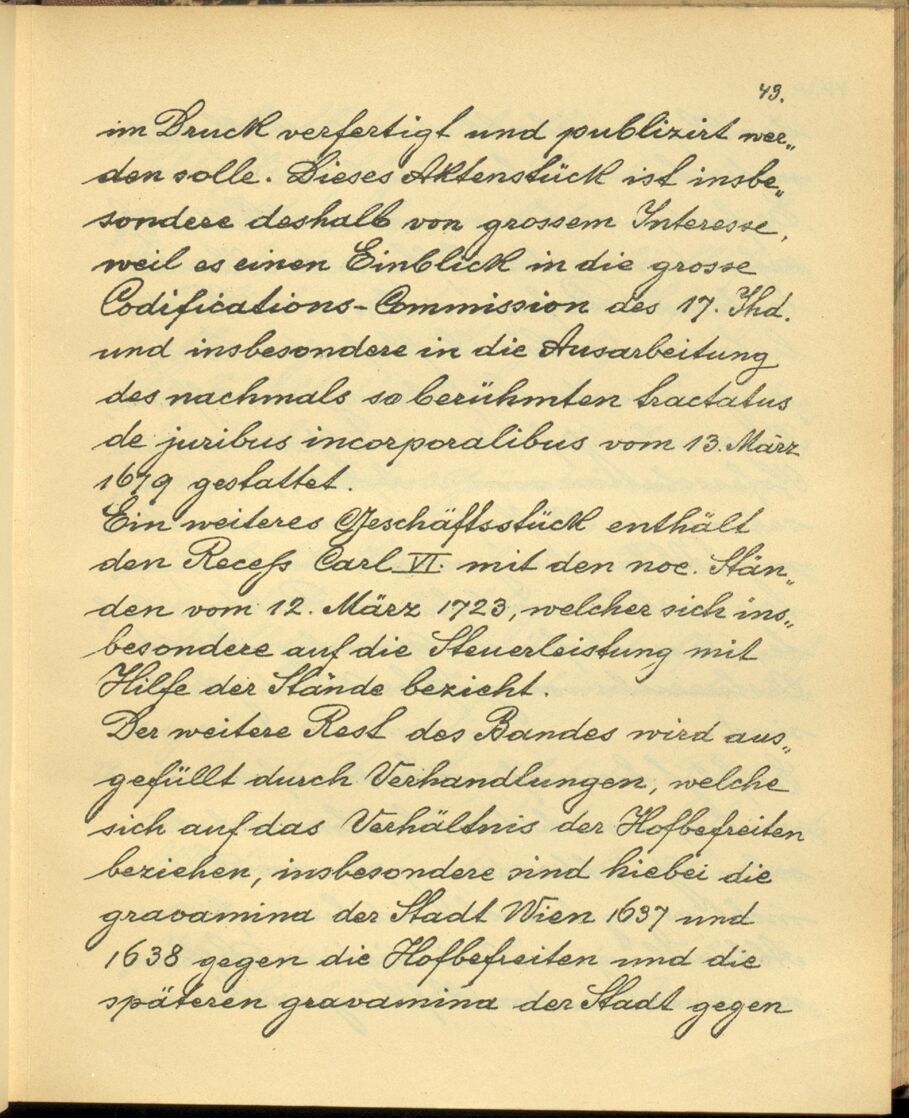 43.
im Druck verfertigt und publizirt wer„
den solle. Dieses Aktenstück ist insbe„
sondere deshalb von grossem Interesse,
weil es einen Einblick in die grosse
Codifications-Commission des 17. Jhd.
und insbesondere in die Ausarbeitung
des nachmals so berühmten tractatus
de juribus incorporalibus vom 13. März
1679 gestattet.
Ein weiteres Geschäftsstück enthält
den Recess Carl VI. mit den noe. Stän„
den vom 12. März 1723, welcher sich ins„
besondere auf die Steuerleistung mit
Hilfe der Stände bezieht.
Der weitere Rest des Bandes wird aus„
gefüllt durch Verhandlungen, welche
sich auf das Verhältnis der Hofbefreiten
beziehen, insbesondere sind hiebei die
gravamina der Stadt Wien 1637 und
1638 gegen die Hofbefreiten und die
späteren gravamina der Stadt gegen